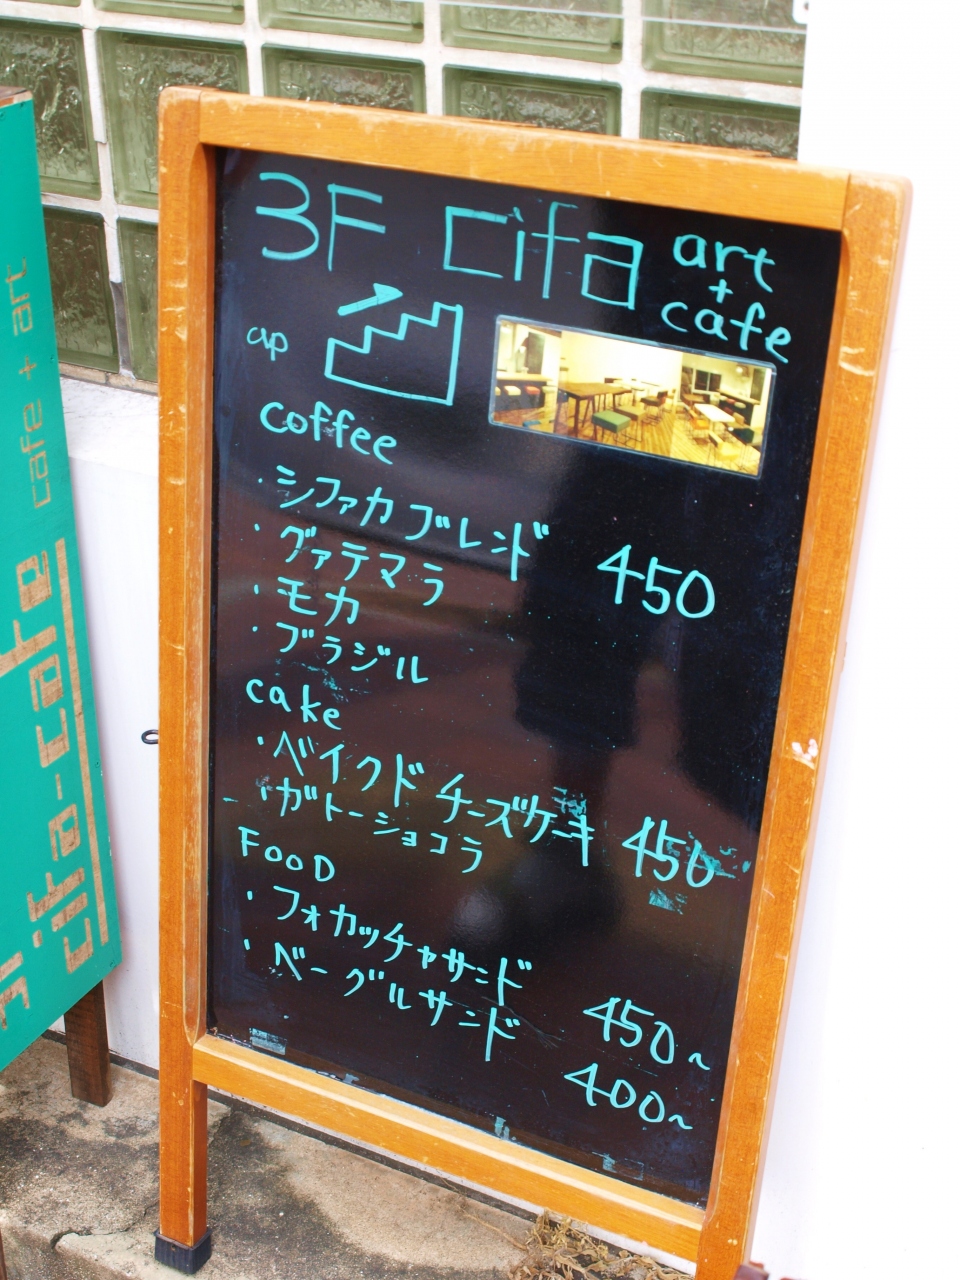 3F cifa art
+
cafe
up
coffee
・シファカブレンド 450
・グァテマラ
・モカ
・ブラジル
cake
・ベイクドチーズケーキ 450
・ガトーショコラ
FOOD
・フォカッチャサンド 450~
・ベーグルサンド 400~
cifa-cafe
cafe + art